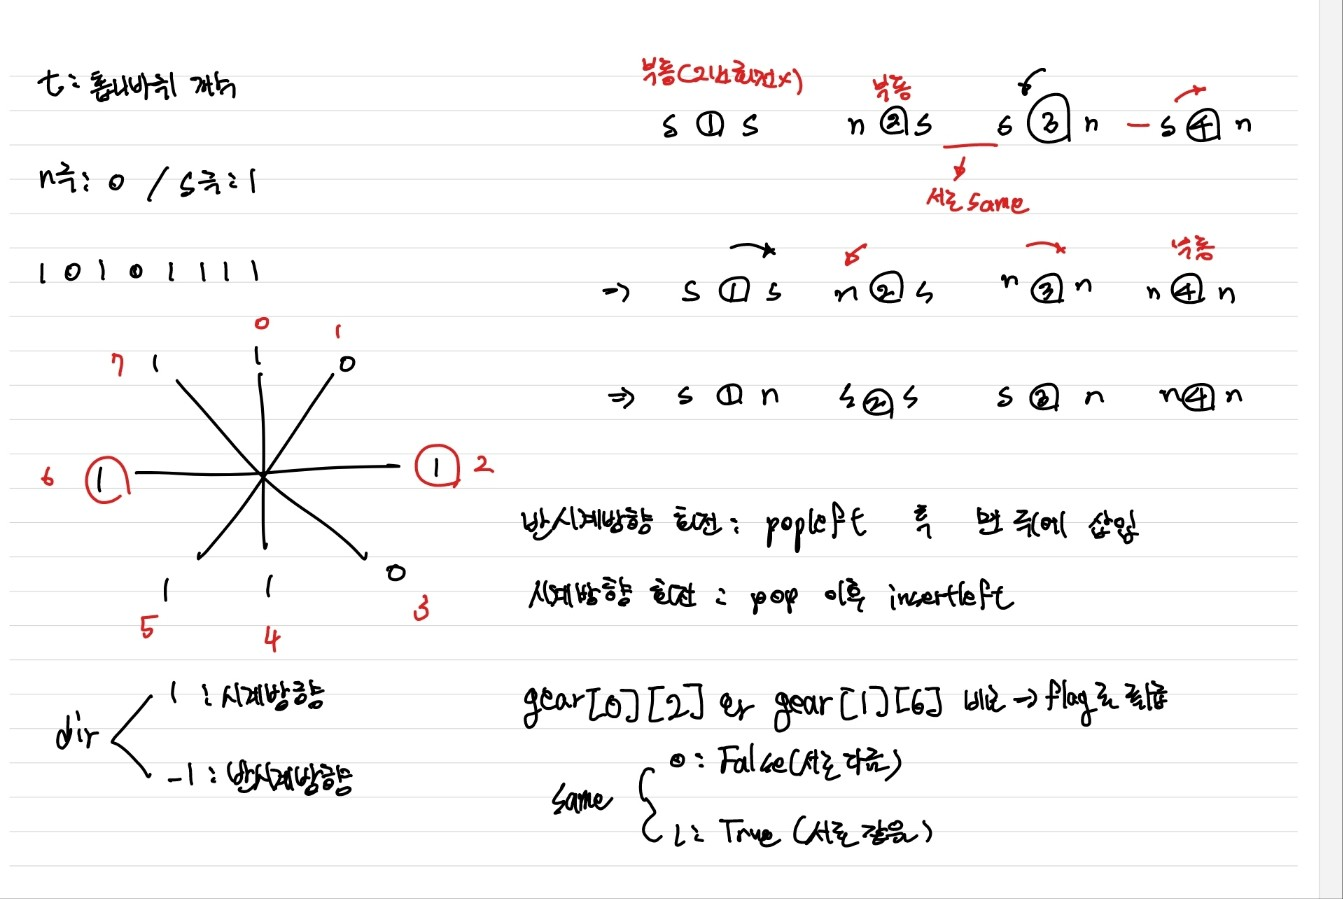 t : 톱니바퀴 개수
n극 : 0 / s극 : 1
1 0 1 0 1 1 1 1
0
7 1 1 0 1
6 1 1 2
1 1 0
5 4 3
dir
1 : 시계방향
-1 : 반시계방향
부동(2번 회전x) 부동
s ① s n ② s s ③ n - s ④ n
서로 same
부동
=> s ① s n ② s n ③ n n ④ n
=> s ① n s ② s s ③ n n ④ n
반시계방향 회전 : popleft 후 맨 뒤에 삽입
시계방향 회전 : pop 이후 insertleft
gear[0][2] 와 gear[1][6] 비교 → flag로
same
0 : False(서로 다름)
1 : True (서로 같음)